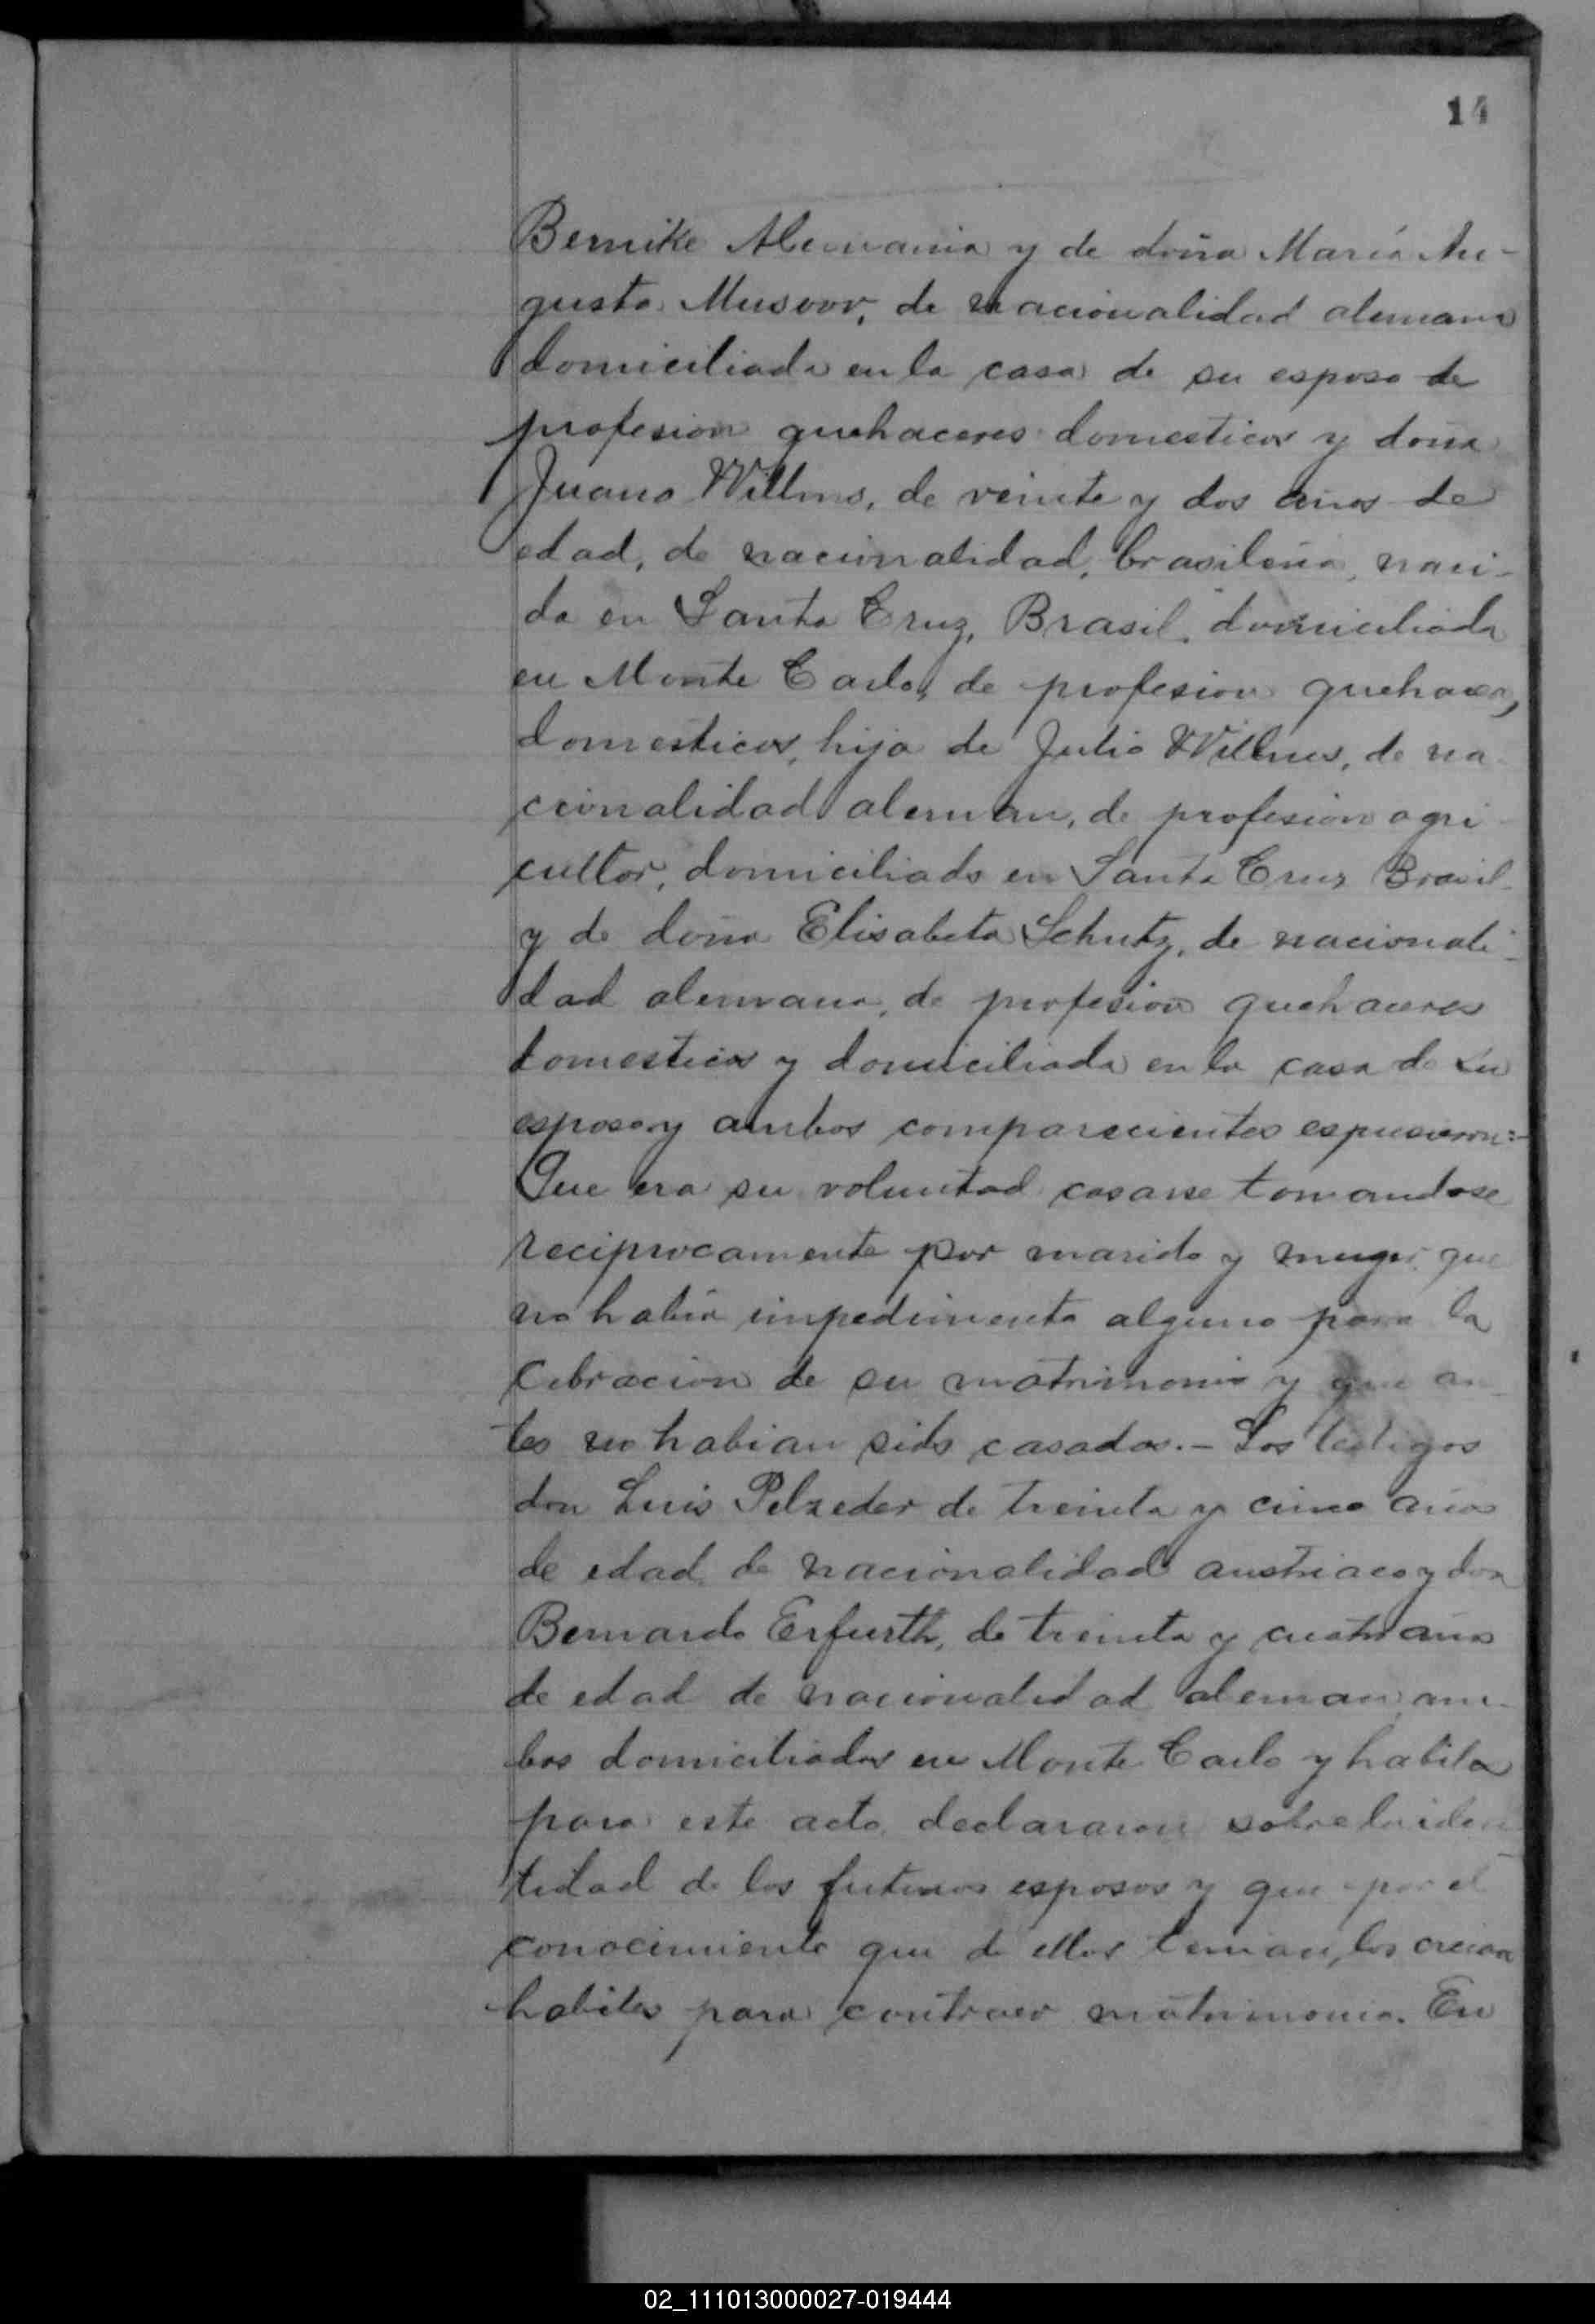 14
Bernike Alemania y de doña María Au-
gusta Musoor, de nacionalidad alemana
domiciliada en la casa de su esposo de
profesion quehaceres domesticos y doña
Juana Willms, de veinte y dos años de
edad, de nacionalidad, brasileña, naci-
da en Santa Cruz, Brasil, domiciliada
en Monte Carlo, de profesion quehaceres
domesticos, hija de Julio Willms, de na
cionalidad aleman, de profesion agri
cultor, domiciliado en Santa Cruz Brasil
y de doña Elisabeta Schutz, de nacionali-
dad alemana, de profesion quehaceres
domesticos y domiciliada en la casa de su
esposo y ambos comparecientes espusieron:-
Que era su voluntad casarse tomandose
reciprocamente por marido y muger que
no habia impedimento alguno para la
cebracion de su matrimonio y que an
tes no habian sido casados.- Los testigos
don Luis Pelzeder de treinta y cinco años
de edad de nacionalidad austriaco y don
Bernardo Erfurth, de treinta y cuatro años
de edad de nacionalidad aleman, am-
bos domiciliados en Monte Carlo y habiles
para este acto declararon sobre la iden
tidad de los futuros esposos y que por el
conocimiento que de ellos tenian, los creian
habiles para contraer matrimonio. En
02_111013000027-019444